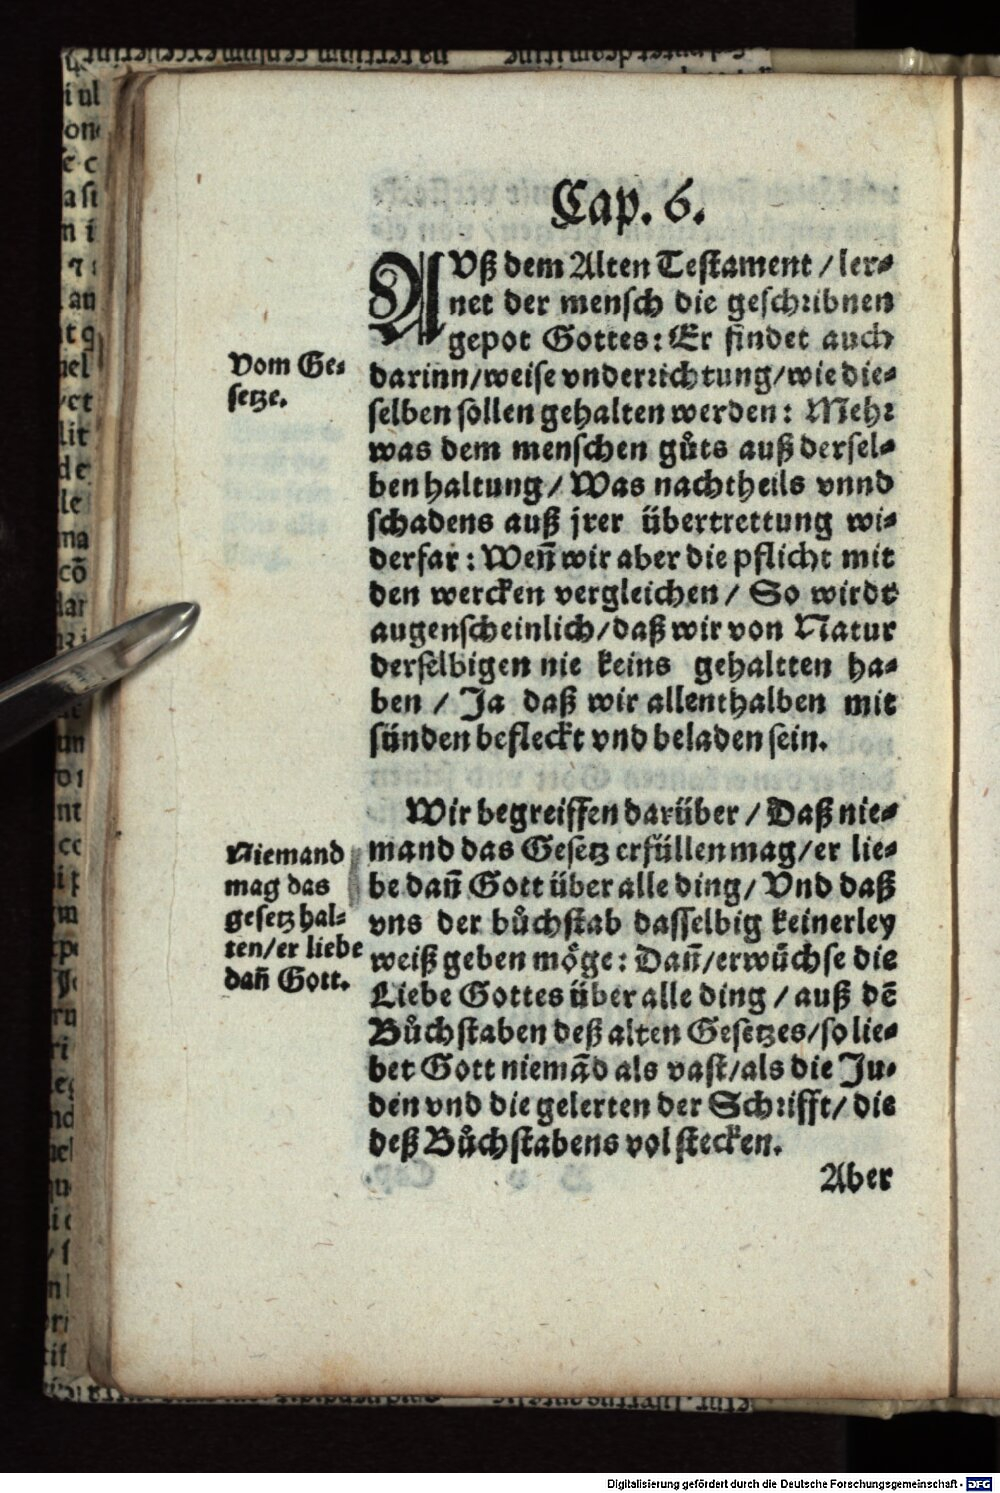 Cap. 6.
AVß dem Alten Testament / ler⸗
net der mensch die geschribnen
gepot Gottes: Er findet auch
Vom Ge⸗
setze.
darinn/weise vnderrichtung/wie die⸗
selben sollen gehalten werden: Mehr
was dem menschen gůts auß dersel⸗
ben haltung/ Was nachtheils vnnd
schadens auß jrer übertrettung wi⸗
derfar: Weñ wir aber die pflicht mit
den wercken vergleichen/ So wirdt
augenscheinlich/daß wir von Natur
derselbigen nie keins gehaltten ha⸗
ben / Ja daß wir allenthalben mit
sünden befleckt vnd beladen sein.
Wir begreiffen darüber / Daß nie⸗
Niemand
mag das
gesetz hal⸗
ten/er liebe
dañ Gott.
mand das Gesetz erfüllen mag/er lie⸗
be dañ Gott über alle ding/ Vnd daß
vns der bůchstab dasselbig keinerley
weiß geben möge: Dañ/erwůchse die
Liebe Gottes über alle ding / auß dē
Bůchstaben deß alten Gesetzes/so lie⸗
bet Gott niemãd als vast/als die Ju⸗
den vnd die gelerten der Schrifft/ die
deß Bůchstabens vol stecken.
Aber
Digitalisierung gefördert durch die Deutsche Forschungsgemeinschaft - DFG